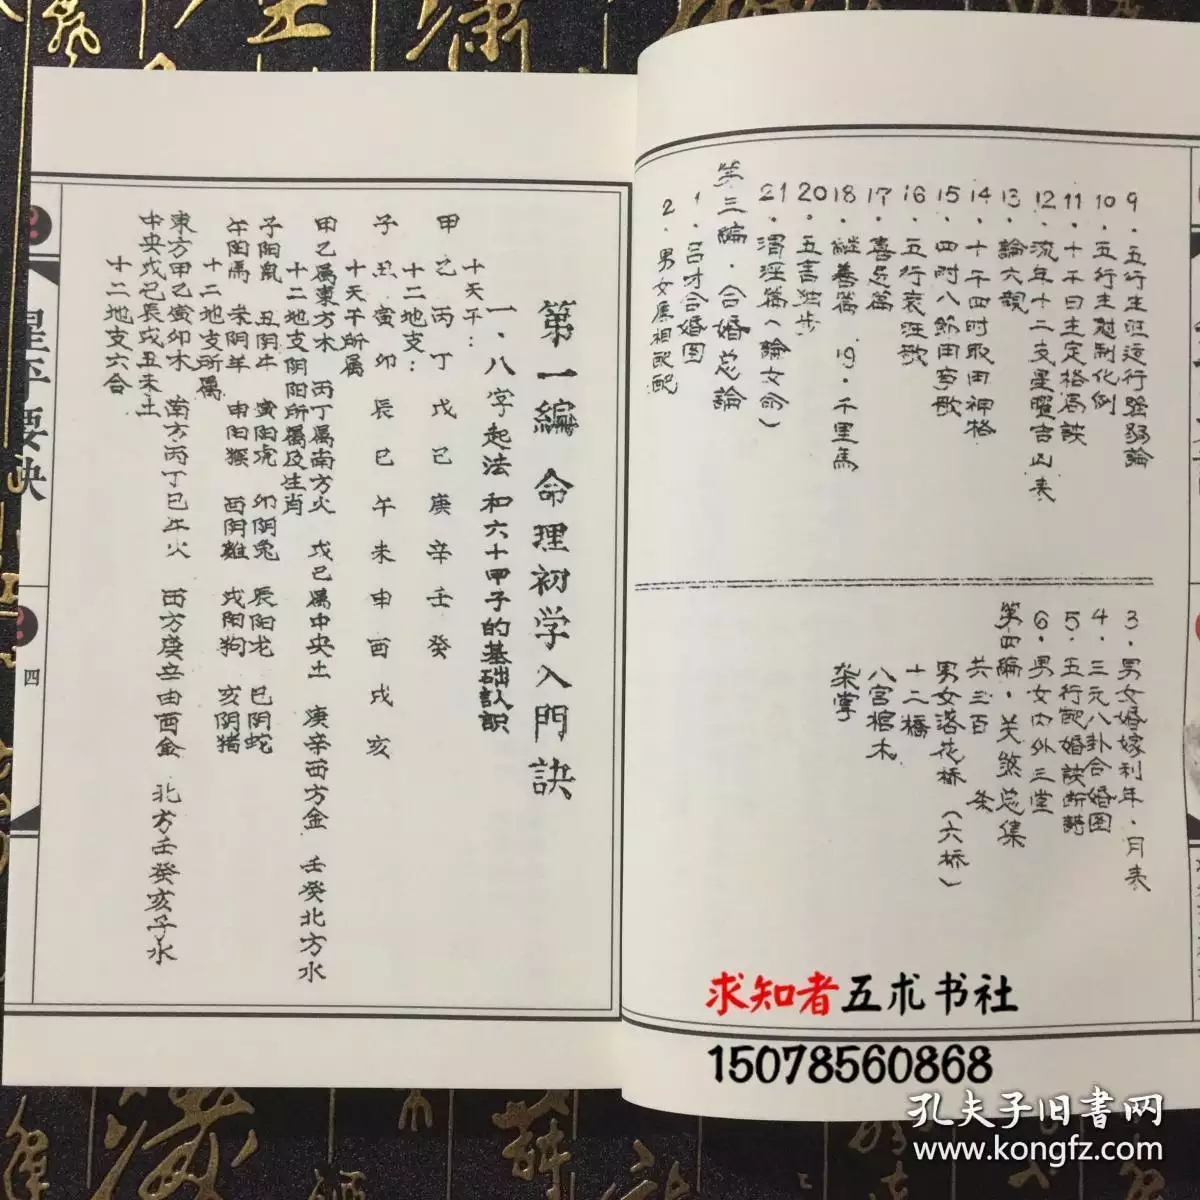 9．五行生旺运行强弱論
10．五行生尅制化例
11．十干日主定格局訣
12．流年十二支星曜吉凶表
13．論六親
14．十干四时取用神格
15．四时八節用事歌
16．五行衰旺歌
17．喜忌篇
18．継善篇　19．千里馬
20．五言独步
21．渭涇篇（論女命）
第三编．合婚总論
1．吕才合婚图
2．男女属相配配
3．男女婚嫁利年．月表
4．三元八卦合婚图
5．五行配婚訣断語
6．男女内外三堂
第四编．关煞总集
共三百　条
男女落花桥（六桥）
十二橋
八宫棺木
架掌
第一編 命理初学入門訣
一．八字起法和六十甲子的基础认识
十天干：
甲 乙 丙 丁 戊 己 庚 辛 壬 癸
十二地支：
子 丑 寅 卯 辰 巳 午 未 申 酉 戌 亥
十天干所属
甲乙属東方木 丙丁属南方火 戊己属中央土 庚辛西方金 壬癸北方水
十二地支阴阳所属及生肖
子阳鼠 丑阴牛 寅阳虎 卯阴兔 辰阳龙 巳阴蛇
午阳馬 未阴羊 申阳猴 酉阴雞 戌阳狗 亥阴猪
十二地支所属
東方甲乙寅卯木 南方丙丁巳午火 西方庚辛申酉金 北方壬癸亥子水
中央戊己辰戌丑未土
十二地支六合
星平要訣
四
求知者五术书社
15078560868
孔夫子旧書网
www.kongfz.com